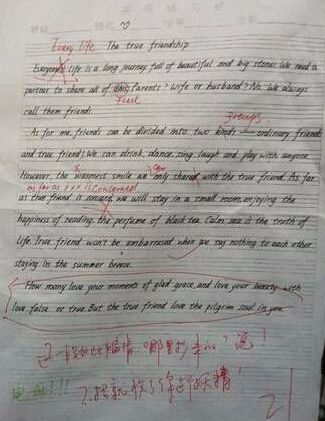 Every life The true friendship
Everyone life is a long journey full of beautiful and big stones. We need a
partner to share all of this. Parents? Wife or husband? No. We always
call them friend.
First groups
As for me, friends can be divided into two kinds ordinary friends
and true friends. We can drink, dance, sing, laugh and play with anyone.
However, the warmest smile we only shared with the true friend. As far
as far as xxx is concerned
as true friend is concern, we will stay in a small room, enjoying the
happiness of reading, the perfume of black tea. Calm sea is the truth of
life. True friend won't be embarrassed when we say nothing to each other
staying in the summer breeze.
How many love your moments of glad grace, and love your beauty with
love false or true. But the true friend love the pilgrim soul in you.
这一段如此 哪里抄来的？说！